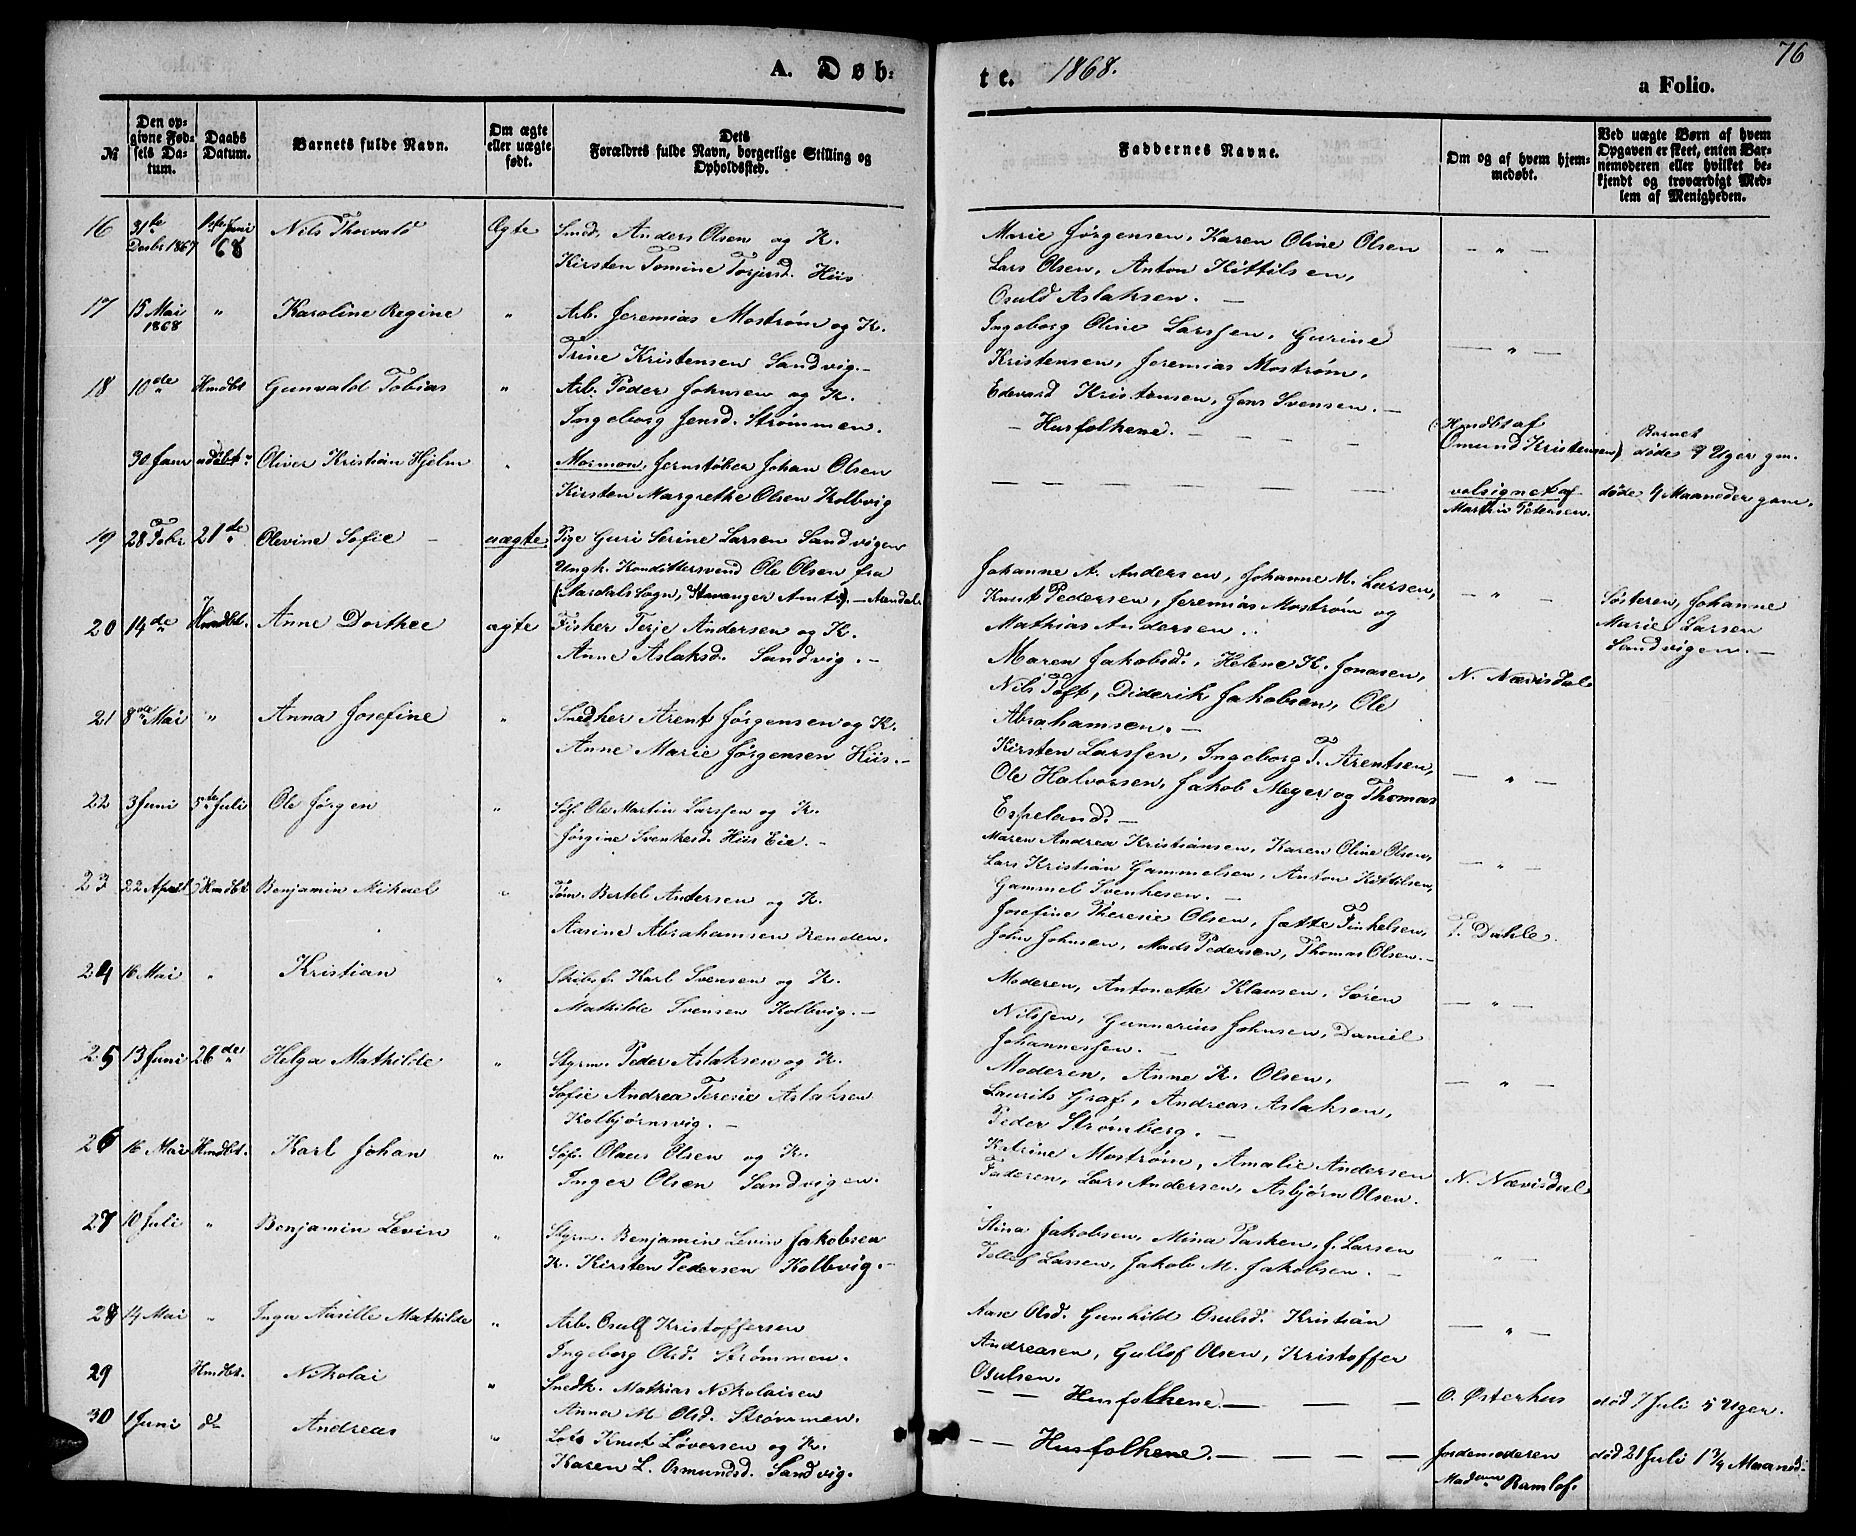 76
A. Døb=
te. 1868.
a Folio.
№
Den op=
givne Fød=
sels Da=
tum.
Daabs
Datum.
Barnets fulde Navn.
Om ægte
eller uægte
født.
Dets
Forældres fulde Navn, borgerlige Stilling og
Opholdssted.
Faddernes Navne.
Om og af hvem hjem=
medøbt.
Ved uægte Børn af hvem
Opgaven er skeet, enten Bar=
nemoderen eller hvilket be=
kjendt og troværdigt Med=
lem af Menigheden.
16 31te Decbr 1867 Juni 68 Nils Thorvald Ægte Smed. Anders Olsen og K.
Kirsten Tomine Terjesd. Hiis
Marie Jørgensen, Karen Oline Olsen
Lars Olsen, Anton Kittilsen,
Osuld Aslaksen. —
— „ —
17 15 Mai 1868 „ Karoline Regine „ Arb. Jeremias Mostrøm og K.
Trine Kristensen Sandvig. —
Ingeborg Oline Larssen, Gurine
Kristensen, Jeremias Mostrøm,
Edevard Kristensen, Jens Svensen. —
— „ —
18 10de „ Hmdbt Gunvald Tobias „ Arb. Peder Johnsen og K.
Ingeborg Jensd. Strømmen.
— Husfolkene. —
(Hmdbt af
Omund Kristensen)
Barnet
døde 9 Uger gm.
30 Janr udøbt „ Oliver Kristian Hjelm „ Mormon, Jernstøber Johan Olsen
Kirsten Margrethe Olsen Kolbvig
velsignet af
Martin Petersen.
døde 4 Maaneder gam.
19 28 Febr 21de „ Olevine Sofie — uægte Pige Guri Serine Larsen Sandvigen
Ungk. Kondittersvend Ole Olsen fra
(Aardals Sogn, Stavanger Amt). — Arendal
Johanne A. Andersen, Johanne M. Larsen,
Knut Pedersen, Jeremias Mostrøm og
Mathias Andersen.
— „ —
Søsteren, Johanne
Marie Larsen
Sandvigen. —
20 14de „ Hmdbt. Anne Dorthee ægte Fisher Terje Andersen og K.
Anne Aslaksd. Sandvig. —
Maren Jakobsd., Helene K. Jonasen,
Nils Toft, Diderik Jakobsen, Ole
Abrahamsen. —
N. Nævisdal
21 8de Mai „ Anna Josefine „ Snedker Arent Jørgensen og K.
Anne Marie Jørgensen Hiis. —
Kirsten Larssen, Ingeborg T. Arentsen,
Ole Halvorsen, Jakob Meyer og Thomas
Espeland. —
— „ —
22 3 Juni 5te Juli Ole Jørgen „ Sof. Ole Martin Larssen og K.
Jørgine Svenkesd. Hiis Eie. —
Maren Andrea Kristiansen, Karen Oline Olsen,
Lars Kristian Gammelsen, Anton Kittilsen,
Gammel Svenkesen. —
— „
23 22 April Hmdbt Benjamin Mikael „ Tøm. Bertel Andersen og K.
Aasine Abrahamsen Renden.
Josefine Therese Olsen, Jætte Finkelsen,
John Johnsen, Mads Pedersen, Thomas Olsen. —
T. Dahle.
24 16 Mai „ Kristian „ Skibsf. Karl Svensen og K.
Mathilde Svensen Kolbvig. —
Moderen, Antonette Klausen, Søren
Nilssen, Gunnerius Johnsen, Daniel
Johannessen. —
— „ —
25 13 Juni 26de „ Helga Mathilde „ Styrm. Peder Aslaksen og K.
Sofie Andrea Teresie Aslaksen
Kolbjørnsvig. —
Moderen, Anne K. Olsen,
Laurits Graf, Andreas Aslaksen,
Peder Strømberg. —
— „ —
26 16 Mai Hmdbt. Karl Johan „ Sof. Olaus Olsen og K.
Inger Olsen Sandvigen.
Katrine Mostrøm, Amalie Andersen
Faderen, Lars Andersen, Asbjørn Olsen.
N. Nævisdal
27 10 Juli „ Benjamin Levin „ Styrm. Benjamin Levin Jakobsen
K. Kirsten Pedersen Kolbvig. —
Stina Jakobsen, Mina Pasken, J. Larsen
Tellef Larsen, Jakob M. Jakobsen. —
„
28 14 Mai „ Inga Aasille Mathilde „ Arb. Osulf Kristoffersen
Ingeborg Olsd. Strømmen.
Aase Olsd. Gunhild Osulsd. Kristian
Andreasen, Gullof Olsen, Kristoffer
Osulsen.
— „ —
29 Hmdbt. Nikolai „ Snedk. Mathias Nikolaisen
Anna M Olsd. Strømmen.
— — Husfolkene. — —
O. Østerhus død 7 Juli 5 Uger.
30 1 Juni do Andreas „ Lots Knut Løversen og K.
Karen L. Osmundsd. Sandvig.
— — Husfolkene. — —
Jordemoderen
Madame Ramlof.
død 21 Juli 1 3/4 Maaned